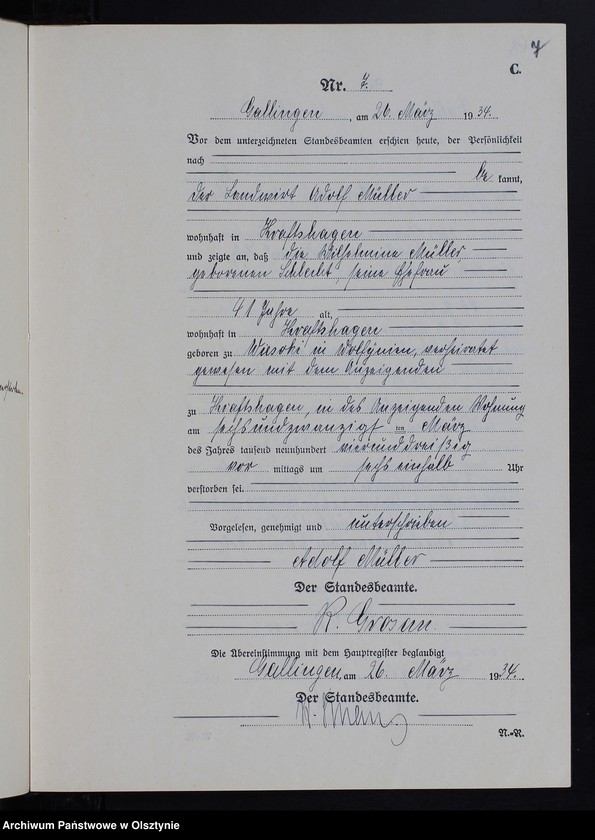 7
C.
Nr. 7.
Gallingen, am 26. März 1934.
Vor dem unterzeichneten Standesbeamten erschien heute, der Persönlichkeit
nach
be kannt,
der Landwirt Adolf Müller
wohnhaft in Kraftshagen
und zeigte an, daß die Wilhelmine Müller,
geborenen Schlecht, seine Ehefrau
41 Jahre alt,
wohnhaft in Kraftshagen
geboren zu in Wolhynien, verheiratet
gewesen mit dem Anzeigenden
zu Kraftshagen, in des Anzeigenden Wohnung
am sechsundzwanzigt ten März
des Jahres tausend neunhundert vierunddreißig
vor mittags um sechs einhalb Uhr
verstorben sei.
Vorgelesen, genehmigt und unterschrieben
Adolf Müller
Der Standesbeamte.
R. Grosan
Die Übereinstimmung mit dem Hauptregister beglaubigt
Gallingen, am 26. März 1934.
Der Standesbeamte.
N.-R.
Archiwum Państwowe w Olsztynie